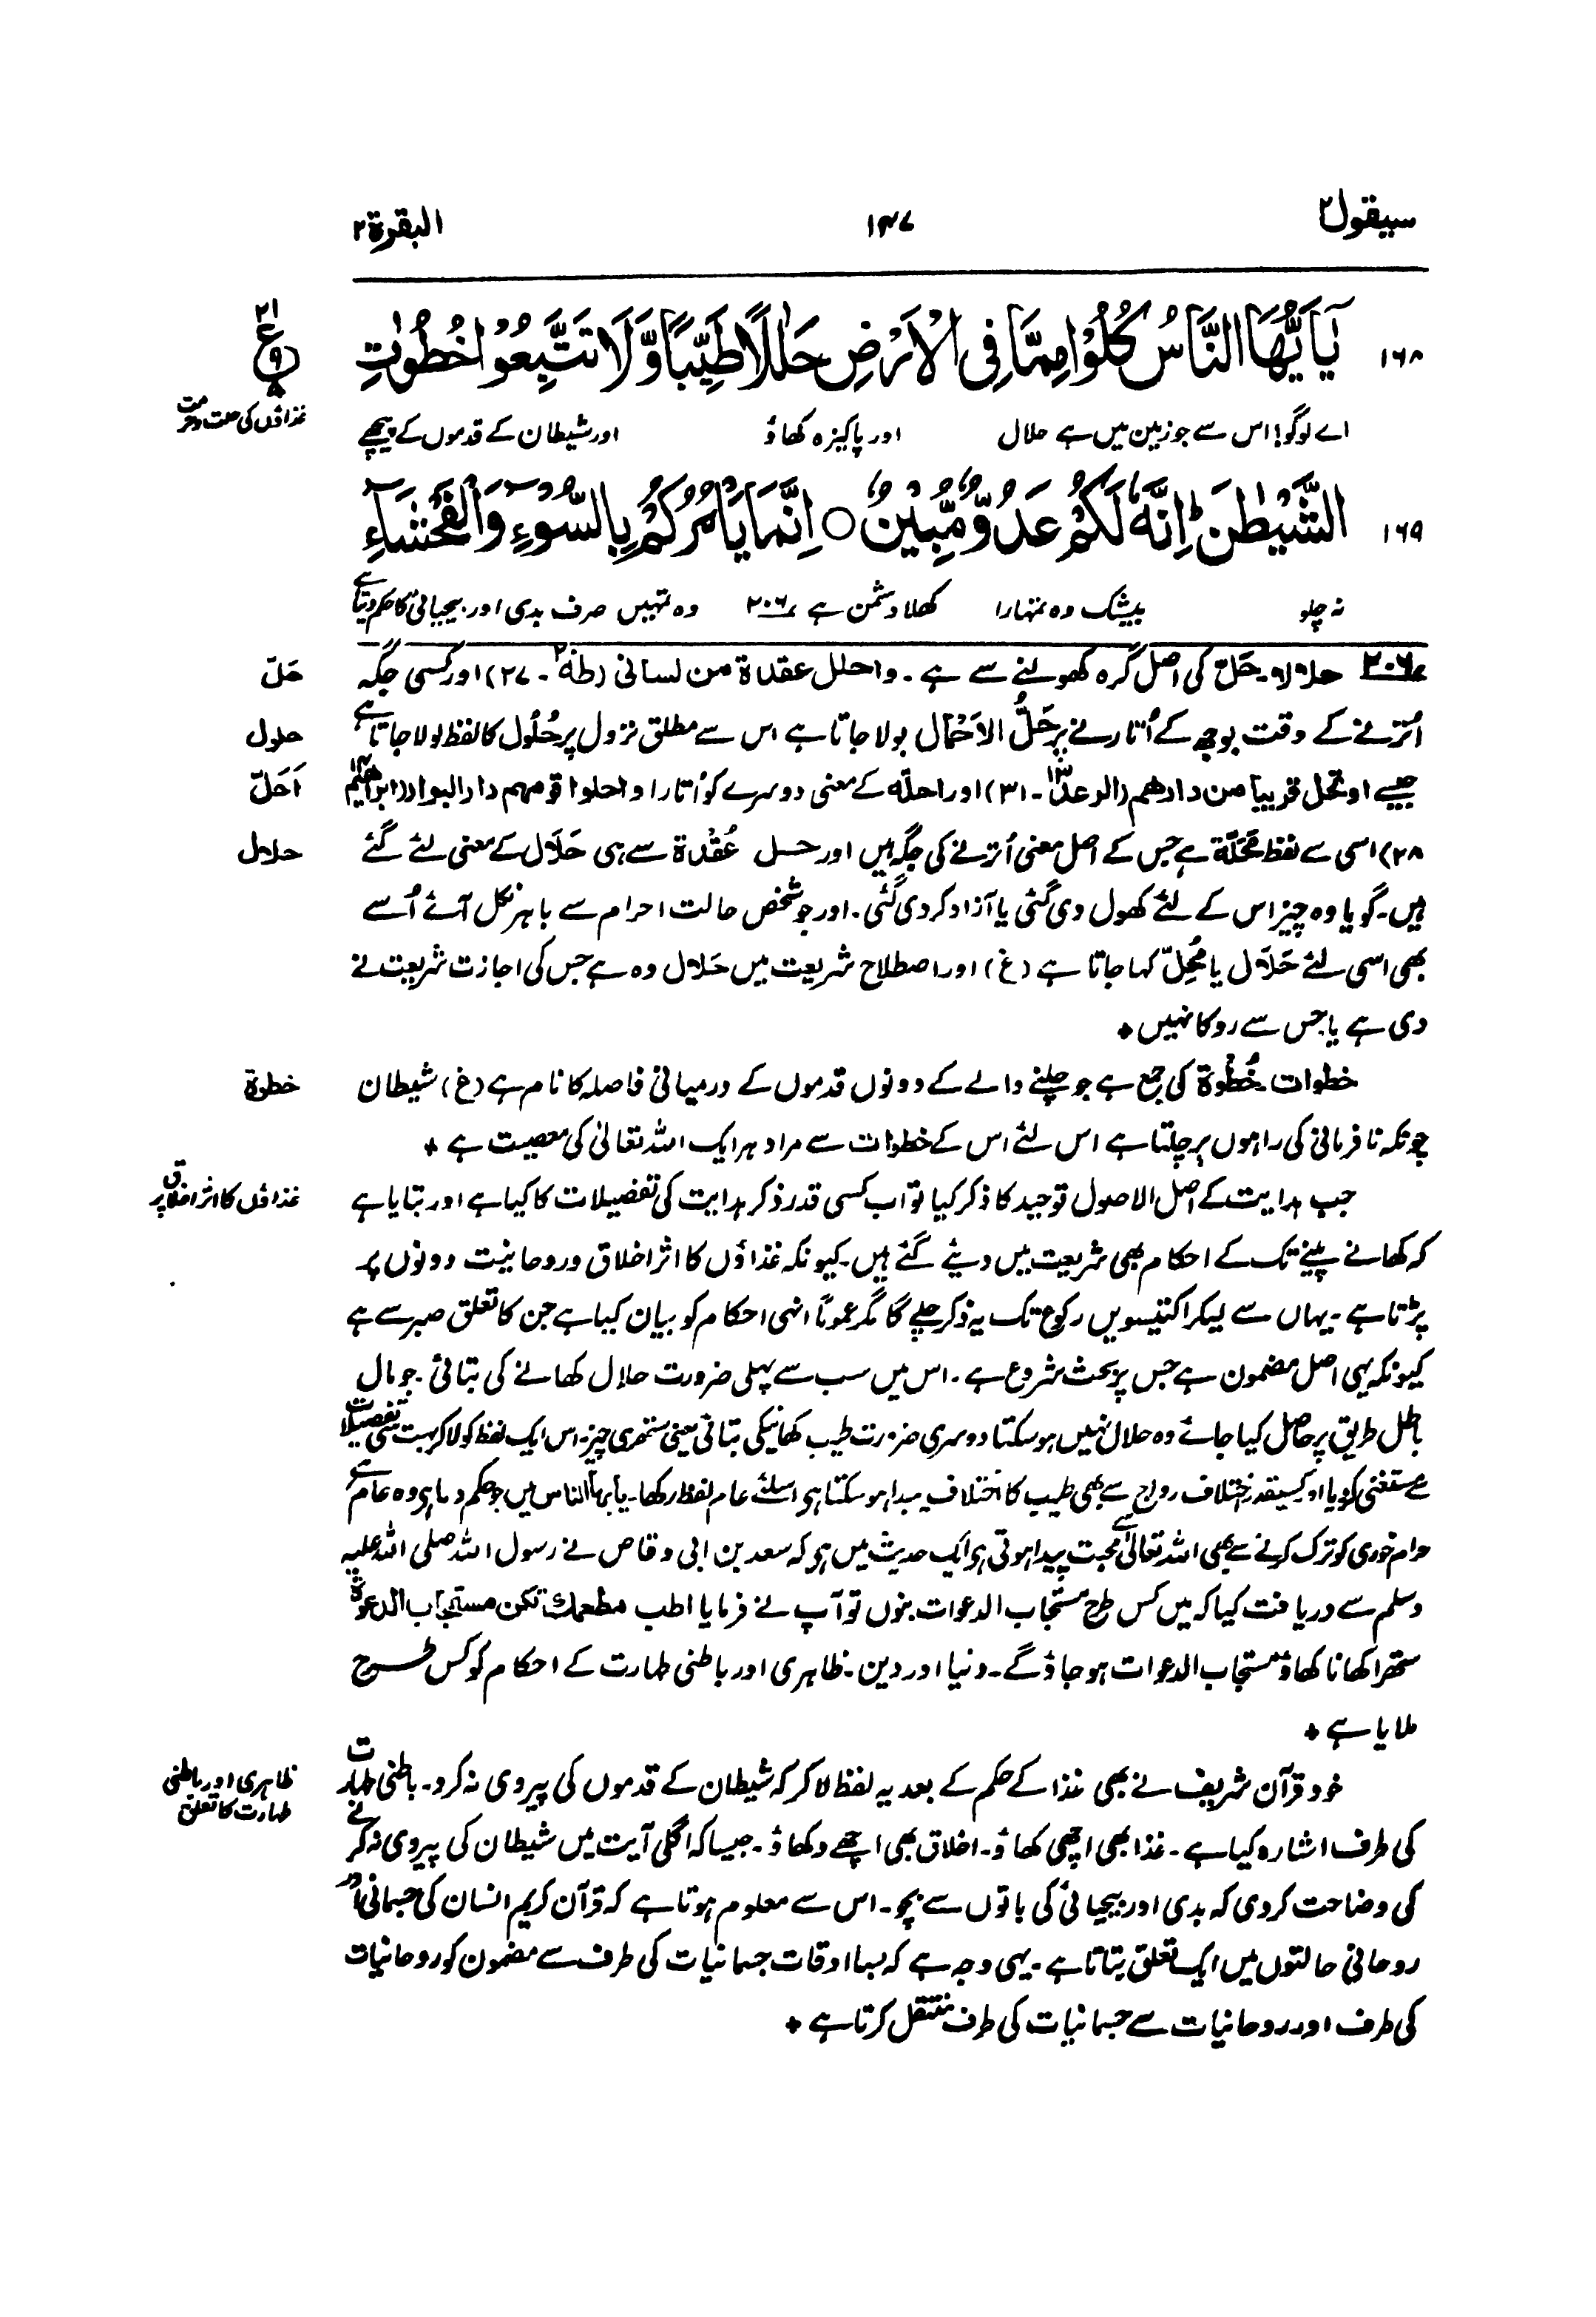 سیقول۲
۱۴۷
البقرة۲
۲۱
ع
۹
۵
غذاؤں کی حلت وحرمت
۱۶۸
يٰٓاَيُّهَا النَّاسُ كُلُوْا مِمَّا فِى الْاَرْضِ حَلٰلًا طَيِّبًا وَّلَا تَتَّبِعُوْا خُطُوٰتِ
اے لوگو! اس سے جو زمین میں ہے حلال اور پاکیزہ کھاؤ اور شیطان کے قدموں کے پیچھے
۱۶۹
الشَّيْطٰنِ ؕ اِنَّهٗ لَكُمْ عَدُوٌّ مُّبِيْنٌ ○ اِنَّمَا يَاْمُرُكُمْ بِالسُّوْٓءِ وَالْفَحْشَآءِ
نہ چلو بیشک وہ تمہارا کھلا دشمن ہے ۲۰۶ وہ تمہیں صرف بدی اور بیحیائی کا حکم دیتا ہے
۲۰۶ حلالا۔ حَلّ کی اصل گرہ کھولنے سے ہے۔ واحلل عقدة من لسانی (طٰهٰ۲۰۔ ۲۷) اور کسی جگہ
حَلّ
اُترنے کے وقت بوجھ کے اُتارنے پر حَلُّ الاَحْمَال بولا جاتا ہے اس سے مطلق نزول پر حُلُول کا لفظ بولا جاتا ہے
حلول
جیسے او تحل قریبا من دارهم (الرعد۱۳۔ ۳۱) اور احلّه کے معنی دوسرے کو اُتارا واحلوا قومهم دار البوار (ابراھیم۱۴
اَحَلّ
۲۸) اسی سے لفظ مَحَلَّة ہے جس کے اصل معنی اُترنے کی جگہ ہیں اور حل عُقْدة سے ہی حَلَال کے معنی لئے گئے
حلال
ہیں۔ گویا وہ چیز اس کے لئے کھول دی گئی یا آزاد کر دی گئی۔ اور جو شخص حالت احرام سے باہر نکل آئے اُسے
بھی اسی لئے حَلَال یا مُحِلّ کہا جاتا ہے (غ) اور اصطلاح شریعت میں حَلال وہ ہے جس کی اجازت شریعت نے
دی ہے یا جس سے روکا نہیں ٭
خطوات۔ خُطْوة کی جمع ہے جو چلنے والے کے دونوں قدموں کے درمیانی فاصلہ کا نام ہے (غ) شیطان
خطوة
چونکہ نافرمانی کی راہوں پر چلتا ہے اس لئے اس کے خطوات سے مراد ہر ایک اللہ تعالیٰ کی معصیت ہے ٭
جب ہدایت کے اصل الاصول توحید کا ذکر کیا تو اب کسی قدر ذکر ہدایت کی تفصیلات کا کیا ہے اور بتایا ہے
غذاؤں کا اثر اخلاق پر
کہ کھانے پینے تک کے احکام بھی شریعت میں دیئے گئے ہیں۔ کیونکہ غذاؤں کا اثر اخلاق وروحانیت دونوں پر
پڑتا ہے۔ یہاں سے لیکر اکتیسویں رکوع تک یہ ذکر چلے گا مگر عموماً انہی احکام کو بیان کیا ہے جن کا تعلق صبر سے ہے
کیونکہ یہی اصل مضمون ہے جس پر بحث شروع ہے۔ اس میں سب سے پہلی ضرورت حلال کھانے کی بتائی۔ جو مال
باطل طریق پر حاصل کیا جائے وہ حلال نہیں ہو سکتا دوسری ضرورت طیب کھانیکی بتائی یعنی ستھری چیز۔ اس ایک لفظ کو لا کر بہت سی تفصیلات
سے مستغنی کر دیا اور کسیقدر اختلاف رواج سے بھی طیب کا اختلاف پیدا ہو سکتا ہو اسلئے عام لفظ رکھا۔ یا یہا الناس میں جو حکم دیا ہو وہ عام ہے
حرام خوری کو ترک کرنے سے بھی اللہ تعالیٰ سے محبت پیدا ہوتی ہو ایک حدیث میں ہو کہ سعد بن ابی وقاص نے رسول اللہ صلی اللہ علیہ
وسلم سے دریافت کیا کہ میں کس طرح مستجاب الدعوات بنوں تو آپ نے فرمایا اطب مطعمك تکن مستجاب الدعوة
ستھرا کھانا کھاؤ مستجاب الدعوات ہو جاؤ گے۔ دنیا اور دین۔ ظاہری اور باطنی طہارت کے احکام کو کس طرح
ملایا ہے ٭
خود قرآن شریف نے بھی غذا کے حکم کے بعد یہ لفظ لا کر کہ شیطان کے قدموں کی پیروی نہ کرو۔ باطنی طہارت
ظاہری اور باطنی
طہارت کا تعلق
کی طرف اشارہ کیا ہے۔ غذا بھی اچھی کھاؤ۔ اخلاق بھی اچھے دکھاؤ۔ جیسا کہ اگلی آیت میں شیطان کی پیروی نہ کرنے
کی وضاحت کر دی کہ بدی اور بیحیائی کی باتوں سے بچو۔ اس سے معلوم ہوتا ہے کہ قرآن کریم انسان کی جسمانی اور
روحانی حالتوں میں ایک تعلق بتاتا ہے۔ یہی وجہ ہے کہ بسا اوقات جسمانیات کی طرف سے مضمون کو روحانیات
کی طرف اور روحانیات سے جسمانیات کی طرف منتقل کرتا ہے ٭